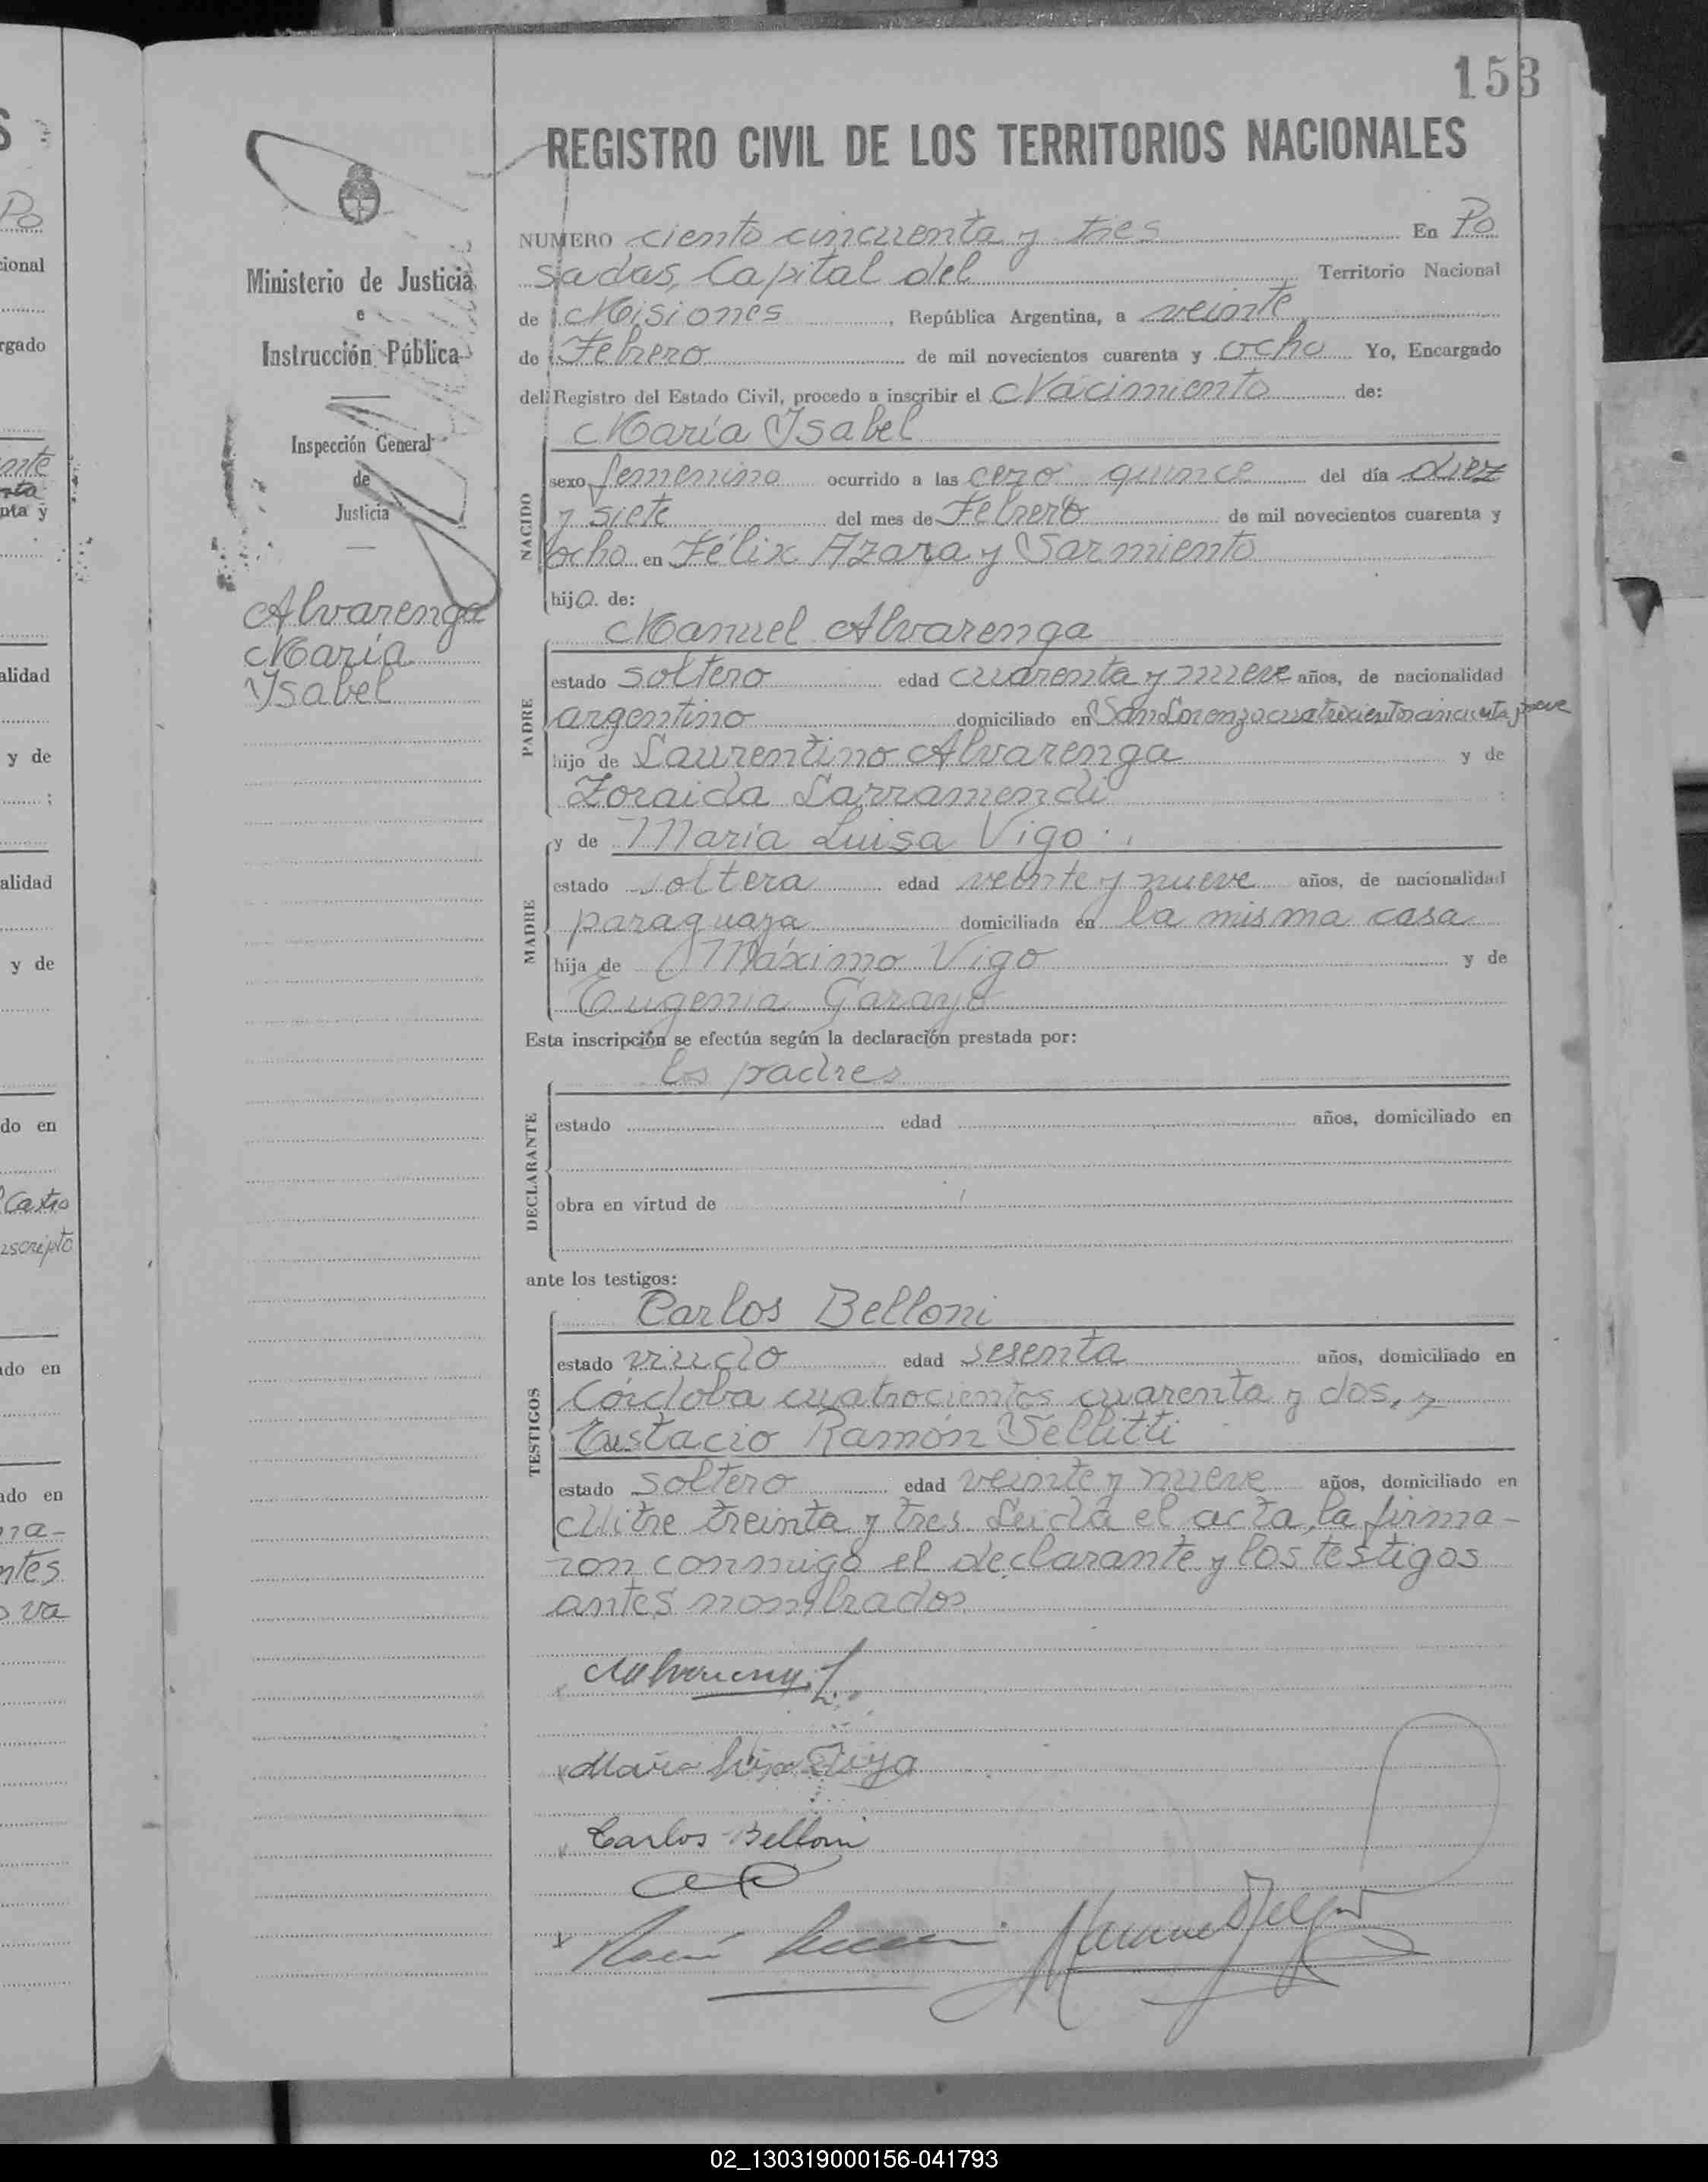 153
REGISTRO CIVIL DE LOS TERRITORIOS NACIONALES
NUMERO ciento cincuenta y tres En Po
sadas, Capital del Territorio Nacional
de Misiones, República Argentina, a veinte
de Febrero de mil novecientos cuarenta y ocho Yo, Encargado
del Registro del Estado Civil, procedo a inscribir el Nacimiento de:
María Ysabel
NACIDO
sexo femenino ocurrido a las cero quince del día diez
y siete del mes de Febrero de mil novecientos cuarenta y
ocho en Félix Azara y Sarmiento
hija de:
Manuel Alvarenga
PADRE
estado soltero edad cuarenta y nueve años, de nacionalidad
argentino domiciliado en San Lorenzo
hijo de Laurentino Alvarenga y de
Zoraida Larramendi
y de María Luisa Vigo
MADRE
estado soltera edad veinte y nueve años, de nacionalidad
paraguaya domiciliada en la misma casa
hija de Máximo Vigo y de
Eugenia Garayo
Esta inscripción se efectúa según la declaración prestada por:
los padres
DECLARANTE
estado edad años, domiciliado en
obra en virtud de
ante los testigos:
Carlos Belloni
TESTIGOS
estado viudo edad sesenta años, domiciliado en
Córdoba cuatrocientos cuarenta y dos, y
Eustacio Ramón Vellitti
estado soltero edad veinte y nueve años, domiciliado en
Mitre treinta y tres Leida el acta, la firma-
ron conmigo el declarante y los testigos
antes nombrados
Carlos Belloni
Ministerio de Justicia
e
Instrucción Pública
Inspección General
de
Justicia
Alvarenga
María
Ysabel
Po
cional
rgado
alidad
y de
alidad
y de
do en
Castro
do en
ado en
ntes
va
02_130319000156-041793